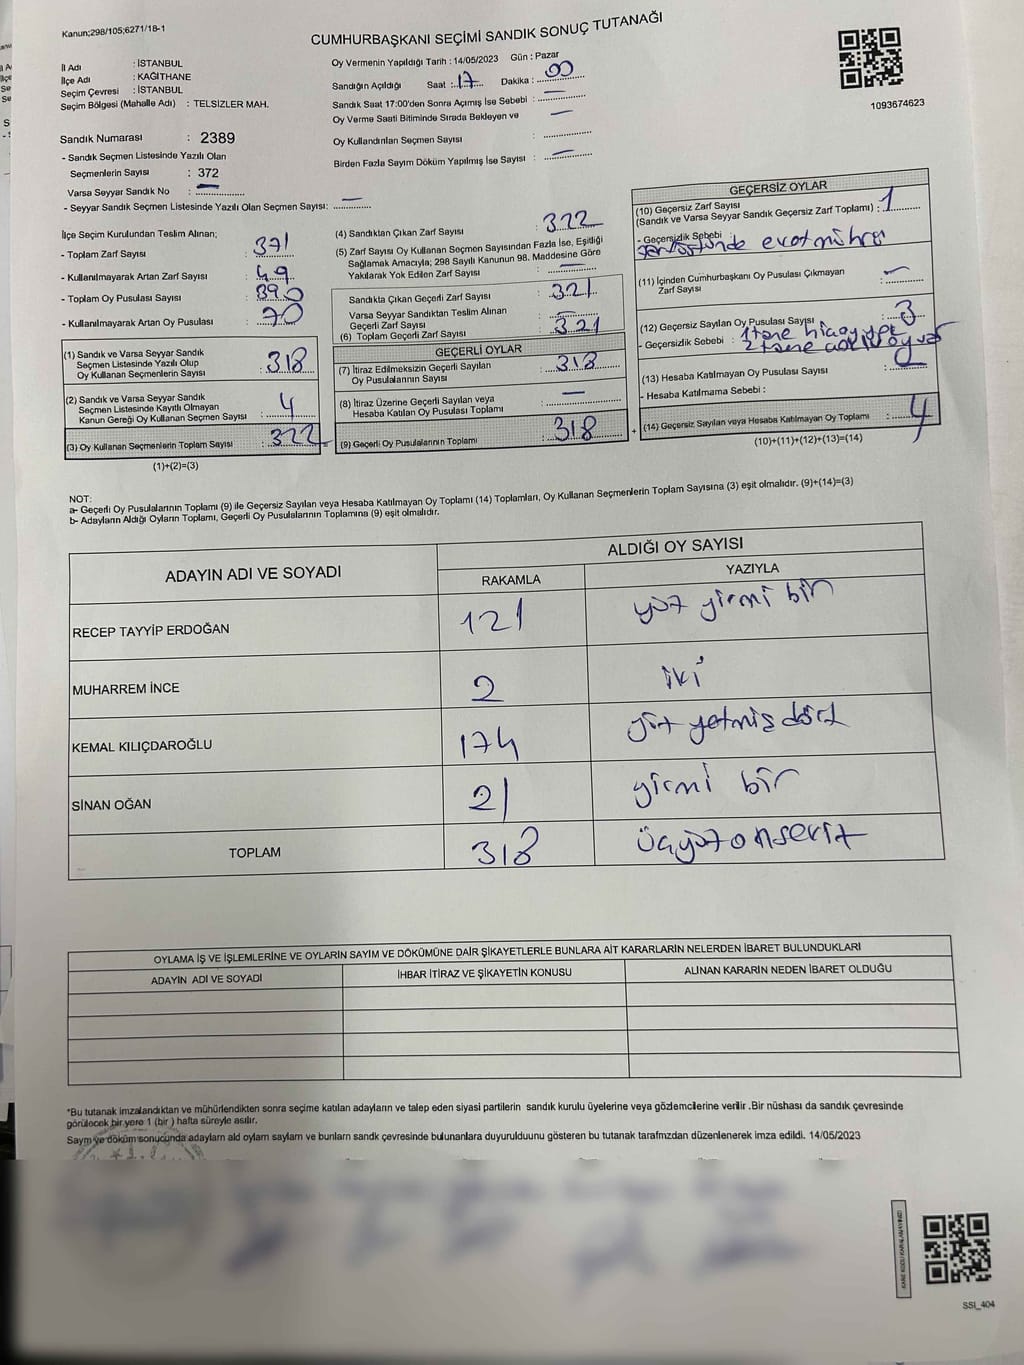 Kanun;298/105;6271/18-1
CUMHURBAŞKANI SEÇİMİ SANDIK SONUÇ TUTANAĞI
İl Adı : İSTANBUL
İlçe Adı : KAĞITHANE
Seçim Çevresi : İSTANBUL
Seçim Bölgesi (Mahalle Adı) : TELSİZLER MAH.
Sandık Numarası : 2389
- Sandık Seçmen Listesinde Yazılı Olan
Seçmenlerin Sayısı : 372
Varsa Seyyar Sandık No : —
- Seyyar Sandık Seçmen Listesinde Yazılı Olan Seçmen Sayısı: —
Oy Vermenin Yapıldığı Tarih : 14/05/2023 Gün : Pazar
Sandığın Açıldığı Saat : 17 Dakika : 00
Sandık Saat 17:00'den Sonra Açımış İse Sebebi : —
Oy Verme Saati Bitiminde Sırada Bekleyen ve —
Oy Kullandırılan Seçmen Sayısı :
Birden Fazla Sayım Döküm Yapılmış İse Sayısı : —
1093674623
İlçe Seçim Kurulundan Teslim Alınan;
- Toplam Zarf Sayısı : 371
- Kullanılmayarak Artan Zarf Sayısı : 49
- Toplam Oy Pusulası Sayısı : 390
- Kullanılmayarak Artan Oy Pusulası : 70
(1) Sandık ve Varsa Seyyar Sandık
Seçmen Listesinde Yazılı Olup
Oy Kullanan Seçmenlerin Sayısı : 318
(2) Sandık ve Varsa Seyyar Sandık
Seçmen Listesinde Kayıtlı Olmayan
Kanun Gereği Oy Kullanan Seçmen Sayısı : 4
(3) Oy Kullanan Seçmenlerin Toplam Sayısı : 322
(1)+(2)=(3)
(4) Sandıktan Çıkan Zarf Sayısı : 322
(5) Zarf Sayısı Oy Kullanan Seçmen Sayısından Fazla İse, Eşitliği
Sağlamak Amacıyla; 298 Sayılı Kanunun 98. Maddesine Göre
Yakılarak Yok Edilen Zarf Sayısı : —
Sandıkta Çıkan Geçerli Zarf Sayısı : 321
Varsa Seyyar Sandıktan Teslim Alınan
Geçerli Zarf Sayısı : —
(6) Toplam Geçerli Zarf Sayısı : 321
GEÇERLİ OYLAR
(7) İtiraz Edilmeksizin Geçerli Sayılan
Oy Pusulalarının Sayısı : 318
(8) İtiraz Üzerine Geçerli Sayılan veya
Hesaba Katılan Oy Pusulası Toplamı : —
(9) Geçerli Oy Pusulalarının Toplamı : 318
GEÇERSİZ OYLAR
(10) Geçersiz Zarf Sayısı
(Sandık ve Varsa Seyyar Sandık Geçersiz Zarf Toplamı) : 1
- Geçersizlik Sebebi :
(11) İçinden Cumhurbaşkanı Oy Pusulası Çıkmayan
Zarf Sayısı : —
(12) Geçersiz Sayılan Oy Pusulası Sayısı : 3
- Geçersizlik Sebebi : 1 tane
2 tane oy var
(13) Hesaba Katılmayan Oy Pusulası Sayısı :
- Hesaba Katılmama Sebebi :
+ (14) Geçersiz Sayılan veya Hesaba Katılmayan Oy Toplamı : 4
(10)+(11)+(12)+(13)=(14)
NOT:
a- Geçerli Oy Pusulalarının Toplamı (9) ile Geçersiz Sayılan veya Hesaba Katılmayan Oy Toplamı (14) Toplamları, Oy Kullanan Seçmenlerin Toplam Sayısına (3) eşit olmalıdır. (9)+(14)=(3)
b- Adayların Aldığı Oyların Toplamı, Geçerli Oy Pusulalarının Toplamına (9) eşit olmalıdır.
ADAYIN ADI VE SOYADI ALDIĞI OY SAYISI
RAKAMLA YAZIYLA
RECEP TAYYİP ERDOĞAN 121 yüz yirmi bir
MUHARREM İNCE 2 iki
KEMAL KILIÇDAROĞLU 174 yüz yetmiş dört
SİNAN OĞAN 21 yirmi bir
TOPLAM 318 üçyüzonsekiz
OYLAMA İŞ VE İŞLEMLERİNE VE OYLARIN SAYIM VE DÖKÜMÜNE DAİR ŞİKAYETLERLE BUNLARA AİT KARARLARIN NELERDEN İBARET BULUNDUKLARI
ADAYIN ADI VE SOYADI İHBAR İTİRAZ VE ŞİKAYETİN KONUSU ALINAN KARARIN NEDEN İBARET OLDUĞU
*Bu tutanak imzalandıktan ve mühürlendikten sonra seçime katılan adayların ve talep eden siyasi partilerin sandık kurulu üyelerine veya gözlemcilerine verilir .Bir nüshası da sandık çevresinde
görülecek bir yere 1 (bir ) hafta süreyle asılır.
Saym ve döküm sonucunda adaylarn ald oylarn saylarn ve bunlarn sandk çevresinde bulunanlara duyurulduunu gösteren bu tutanak tarafmzdan düzenlenerek imza edildi. 14/05/2023
SSI_404